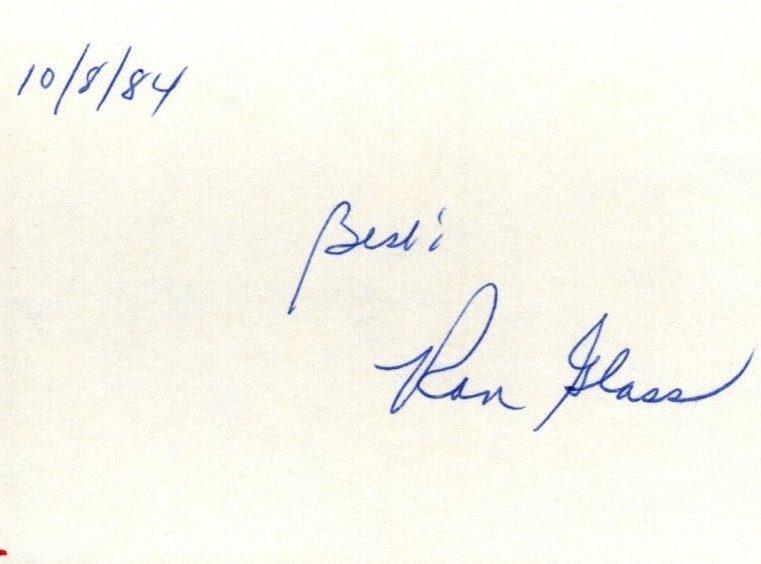 10/8/84
Best:
Ron Glass